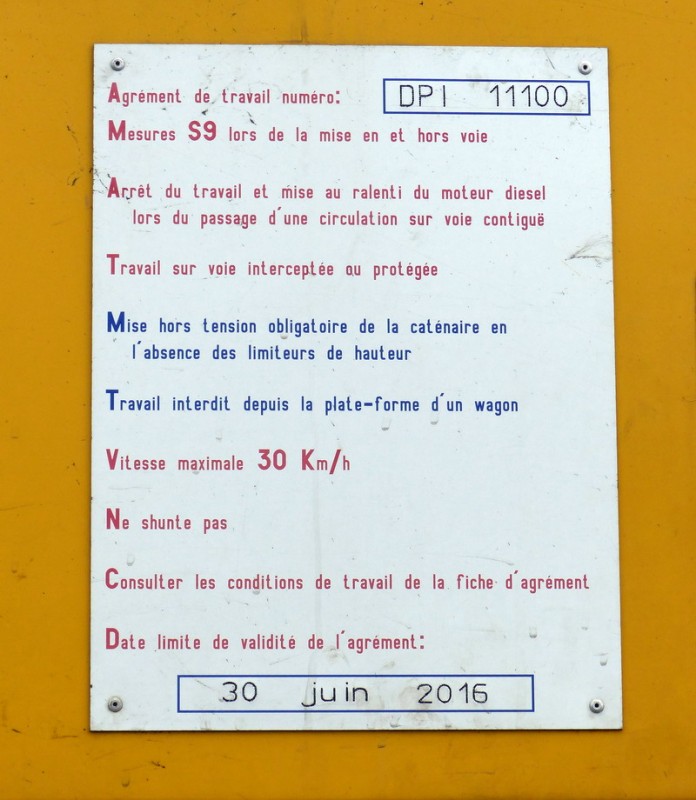 Agrément de travail numéro: DPI 11100
Mesures S9 lors de la mise en et hors voie
Arrêt du travail et mise au ralenti du moteur diesel
lors du passage d'une circulation sur voie contiguë
Travail sur voie interceptée ou protégée
Mise hors tension obligatoire de la caténaire en
l'absence des limiteurs de hauteur
Travail interdit depuis la plate-forme d'un wagon
Vitesse maximale 30 Km/h
Ne shunte pas
Consulter les conditions de travail de la fiche d'agrément
Date limite de validité de l'agrément:
30 juin 2016